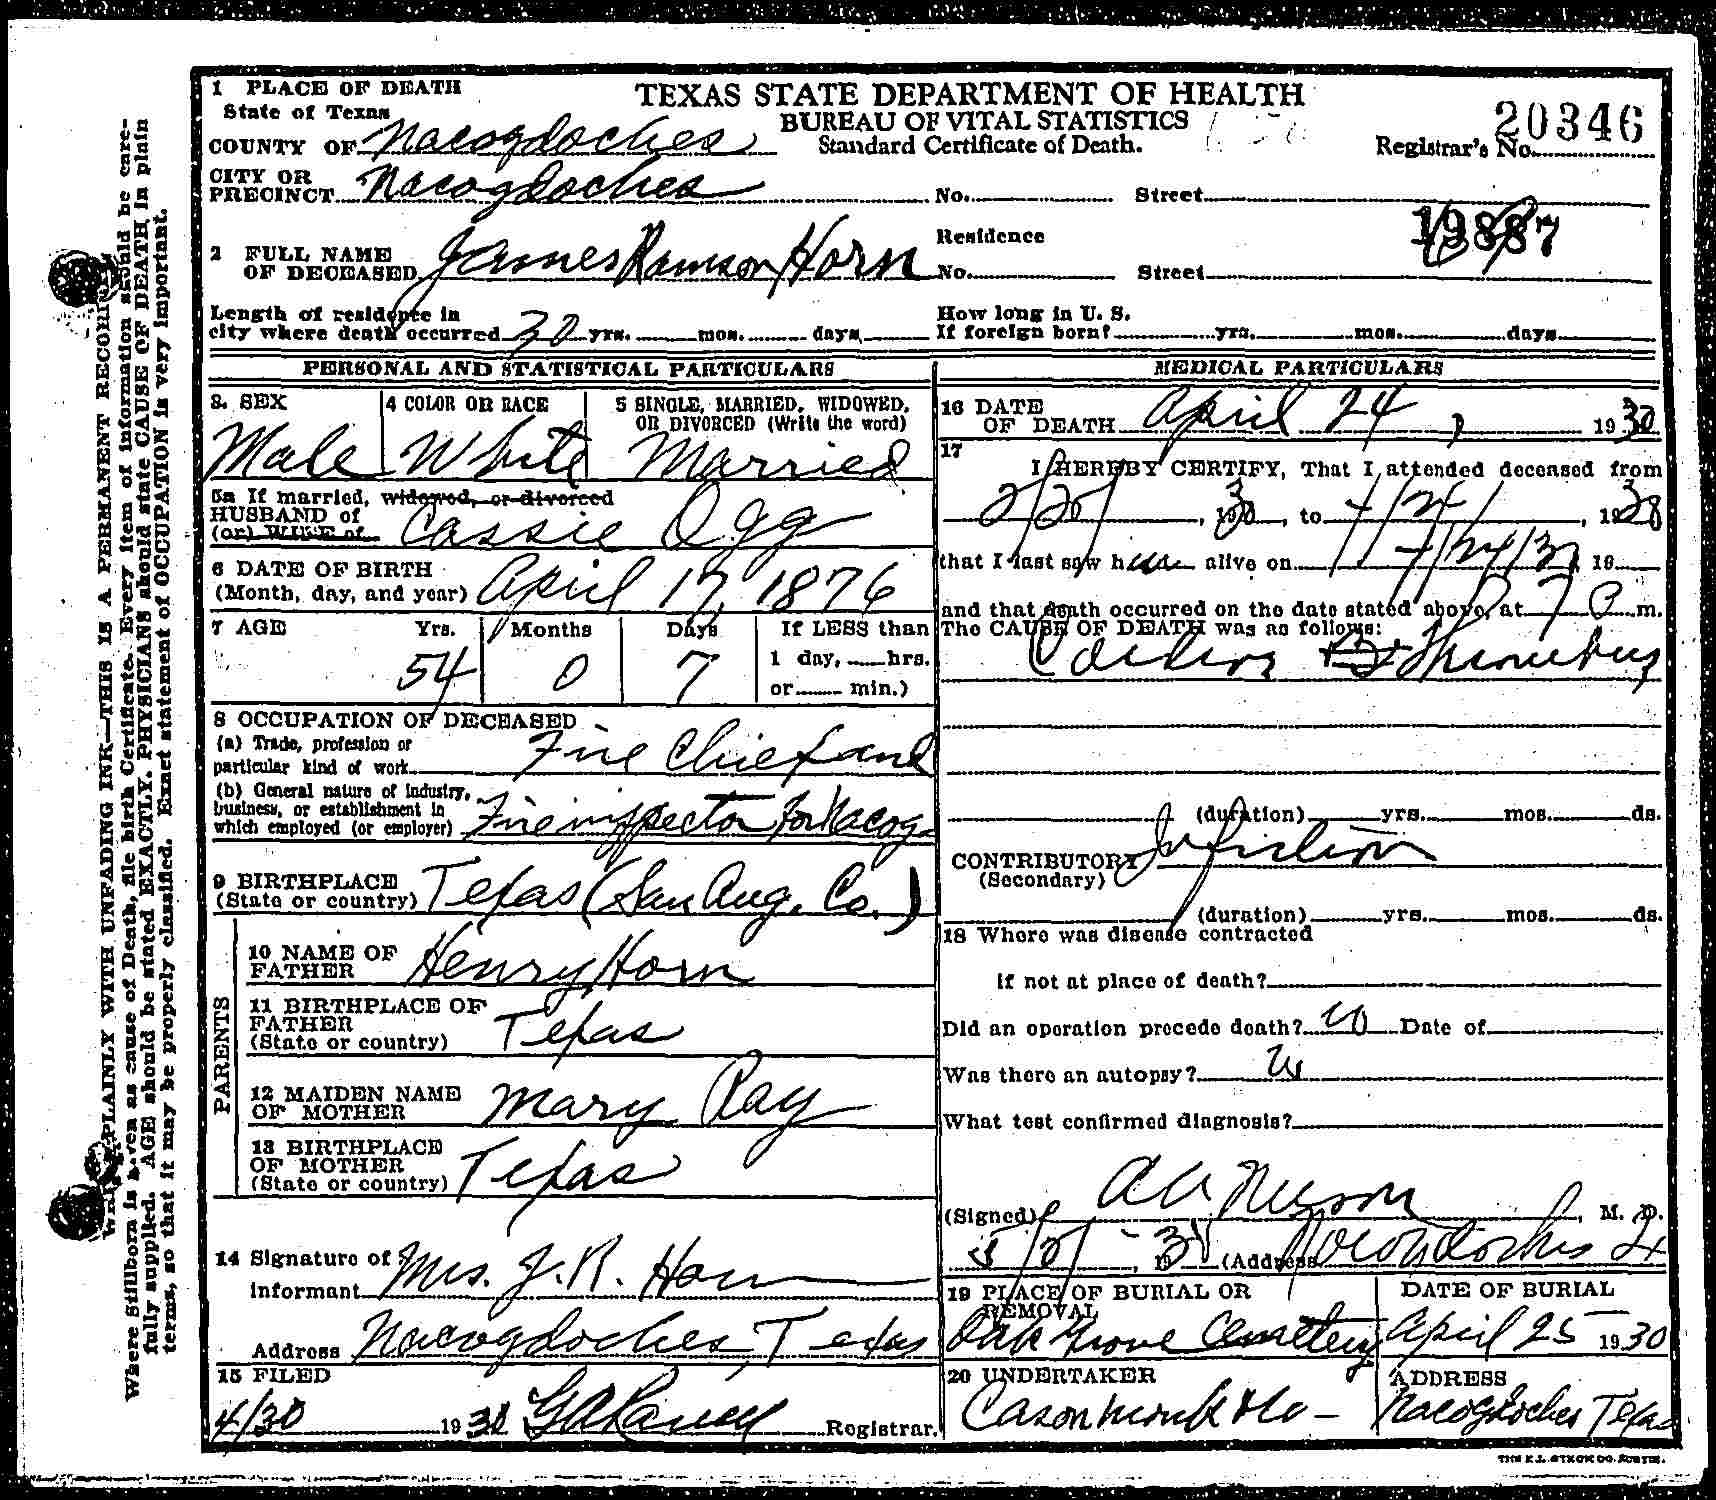 1 PLACE OF DEATH
State of Texas
COUNTY OF Nacogdoches
CITY OR PRECINCT Nacogdoches
TEXAS STATE DEPARTMENT OF HEALTH
BUREAU OF VITAL STATISTICS
Standard Certificate of Death.
20346
Registrar's No.
No. Street
2 FULL NAME OF DECEASED James Ramson Horn
Residence
No. Street
Length of residence in
city where death occurred 30 yrs. mos. days,
How long in U. S.
If foreign born? yrs. mos. days
PERSONAL AND STATISTICAL PARTICULARS
3. SEX
Male
4 COLOR OR RACE
White
5 SINGLE, MARRIED, WIDOWED,
OR DIVORCED (Write the word)
Married
5a If married, widowed, or divorced
HUSBAND of
(or) WIFE of
Cassie Ogg
6 DATE OF BIRTH
(Month, day, and year) April 17, 1876
7 AGE Yrs. Months Days If LESS than
54 0 7 1 day, hrs.
or min.)
8 OCCUPATION OF DECEASED
(a) Trade, profession or
particular kind of work Fire Chief and
(b) General nature of industry,
business, or establishment in
which employed (or employer) Fire inspector for Nacog.
9 BIRTHPLACE
(State or country) Texas (San Aug. Co.)
PARENTS
10 NAME OF
FATHER Henry Horn
11 BIRTHPLACE OF
FATHER
(State or country) Texas
12 MAIDEN NAME
OF MOTHER Mary Ray
13 BIRTHPLACE
OF MOTHER
(State or country) Texas
14 Signature of
Informant Mrs. J. R. Horn
Address Nacogdoches, Texas
15 FILED
4/30 1930 Registrar.
MEDICAL PARTICULARS
16 DATE
OF DEATH April 24, 1930
17
I HEREBY CERTIFY, That I attended deceased from
, 1930, to 4/24/, 19
that I last saw h alive on 4/24/30 19
and that death occurred on the date stated above, at 7 m.
The CAUSE OF DEATH was as follows:
Thrombus
(duration) yrs. mos. ds.
CONTRIBUTORY
(Secondary)
(duration) yrs. mos. ds.
18 Where was disease contracted
if not at place of death?
Did an operation precede death? no Date of
Was there an autopsy? no
What test confirmed diagnosis?
(Signed) M. D.
(Address Nacogdoches
19 PLACE OF BURIAL OR
REMOVAL
Oak Grove Cemetery
DATE OF BURIAL
April 25 1930
20 UNDERTAKER
Cason Monk & Co -
ADDRESS
Nacogdoches Texas
WRITE PLAINLY WITH UNFADING INK—THIS IS A PERMANENT RECORD
Where Stillborn is given as cause of Death, file birth Certificate. Every item of information should be care-
fully supplied. AGE should be stated EXACTLY. PHYSICIANS should state CAUSE OF DEATH in plain
terms, so that it may be properly classified. Exact statement of OCCUPATION is very important.